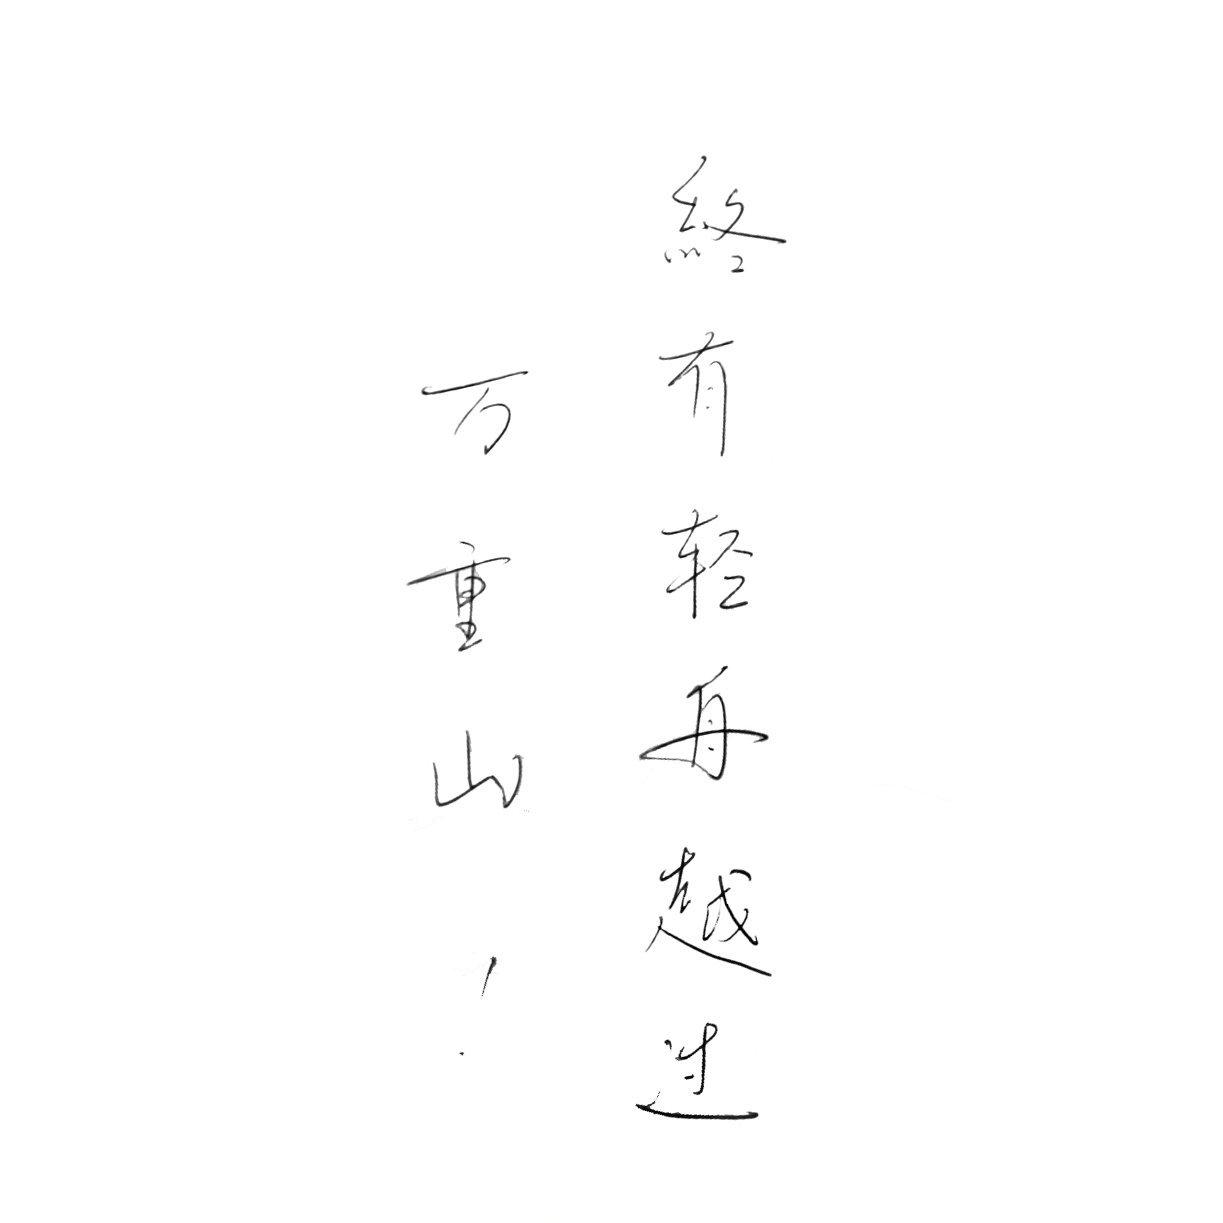 終有轻舟越过
万重山！